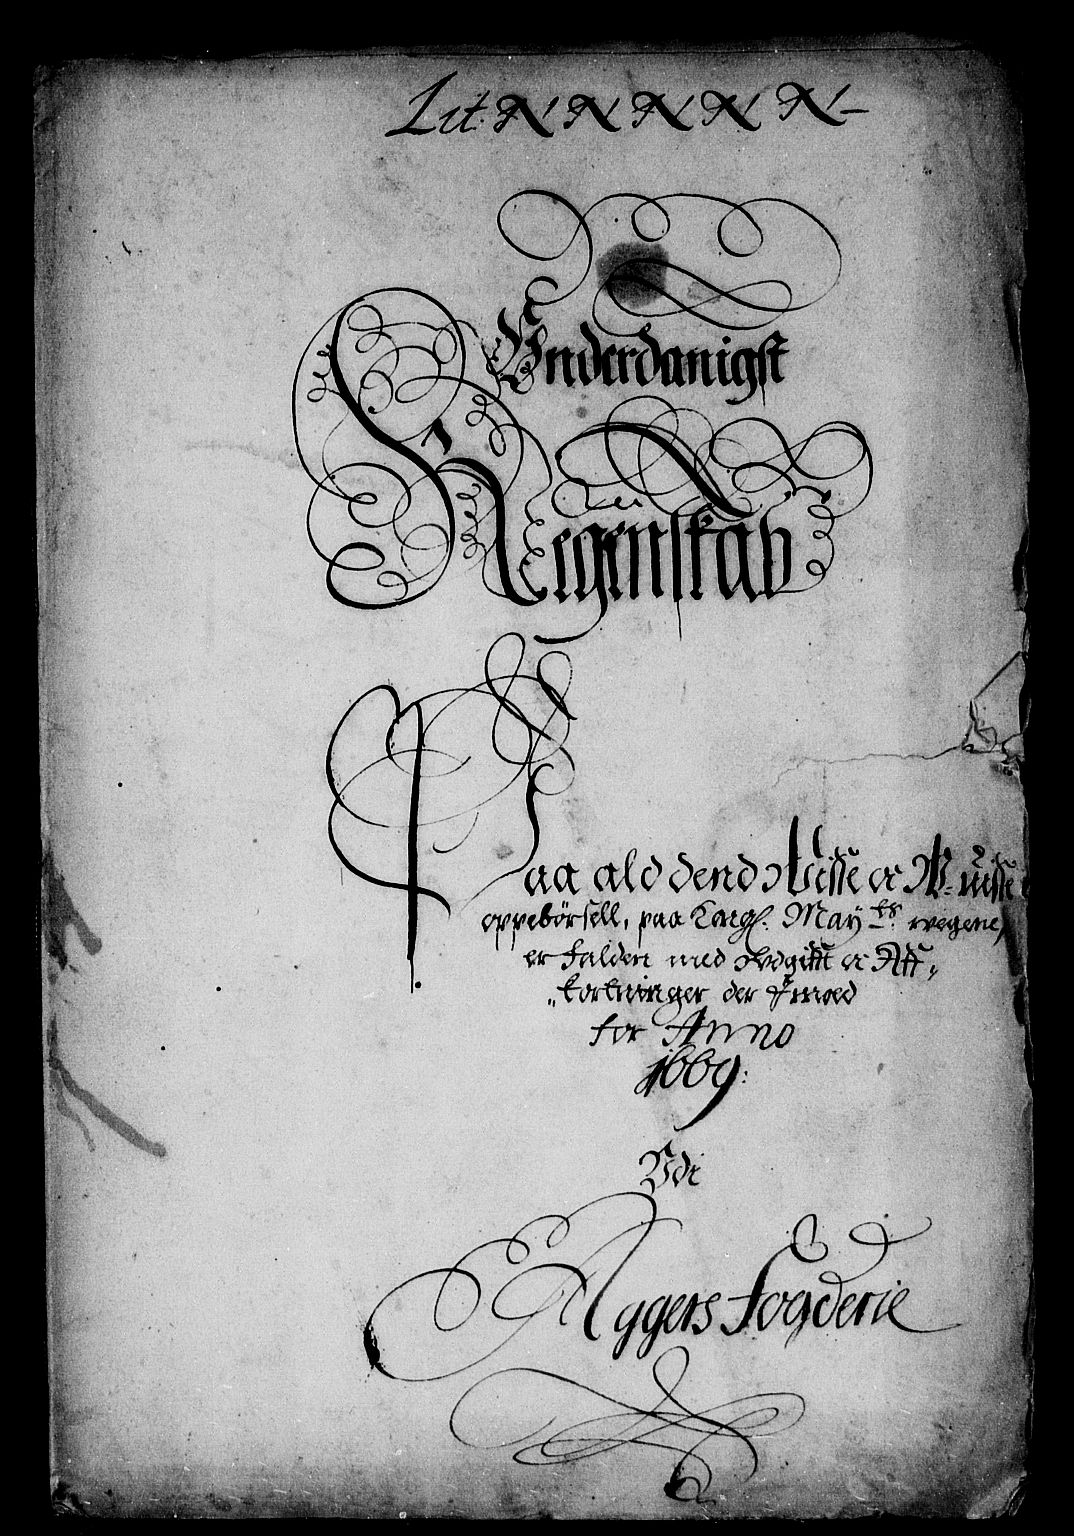 Lit: N N N N N
Vnderdanigst
Regenskab
Paa ald dend Visse oc W: uisse
oppebörsell, paa Kngl: Mayts: wegene,
er falden med Vdgifft oc Aff„
„kortninger der Imoed
for Anno
1669:
Vdi
Aggers Fogderie